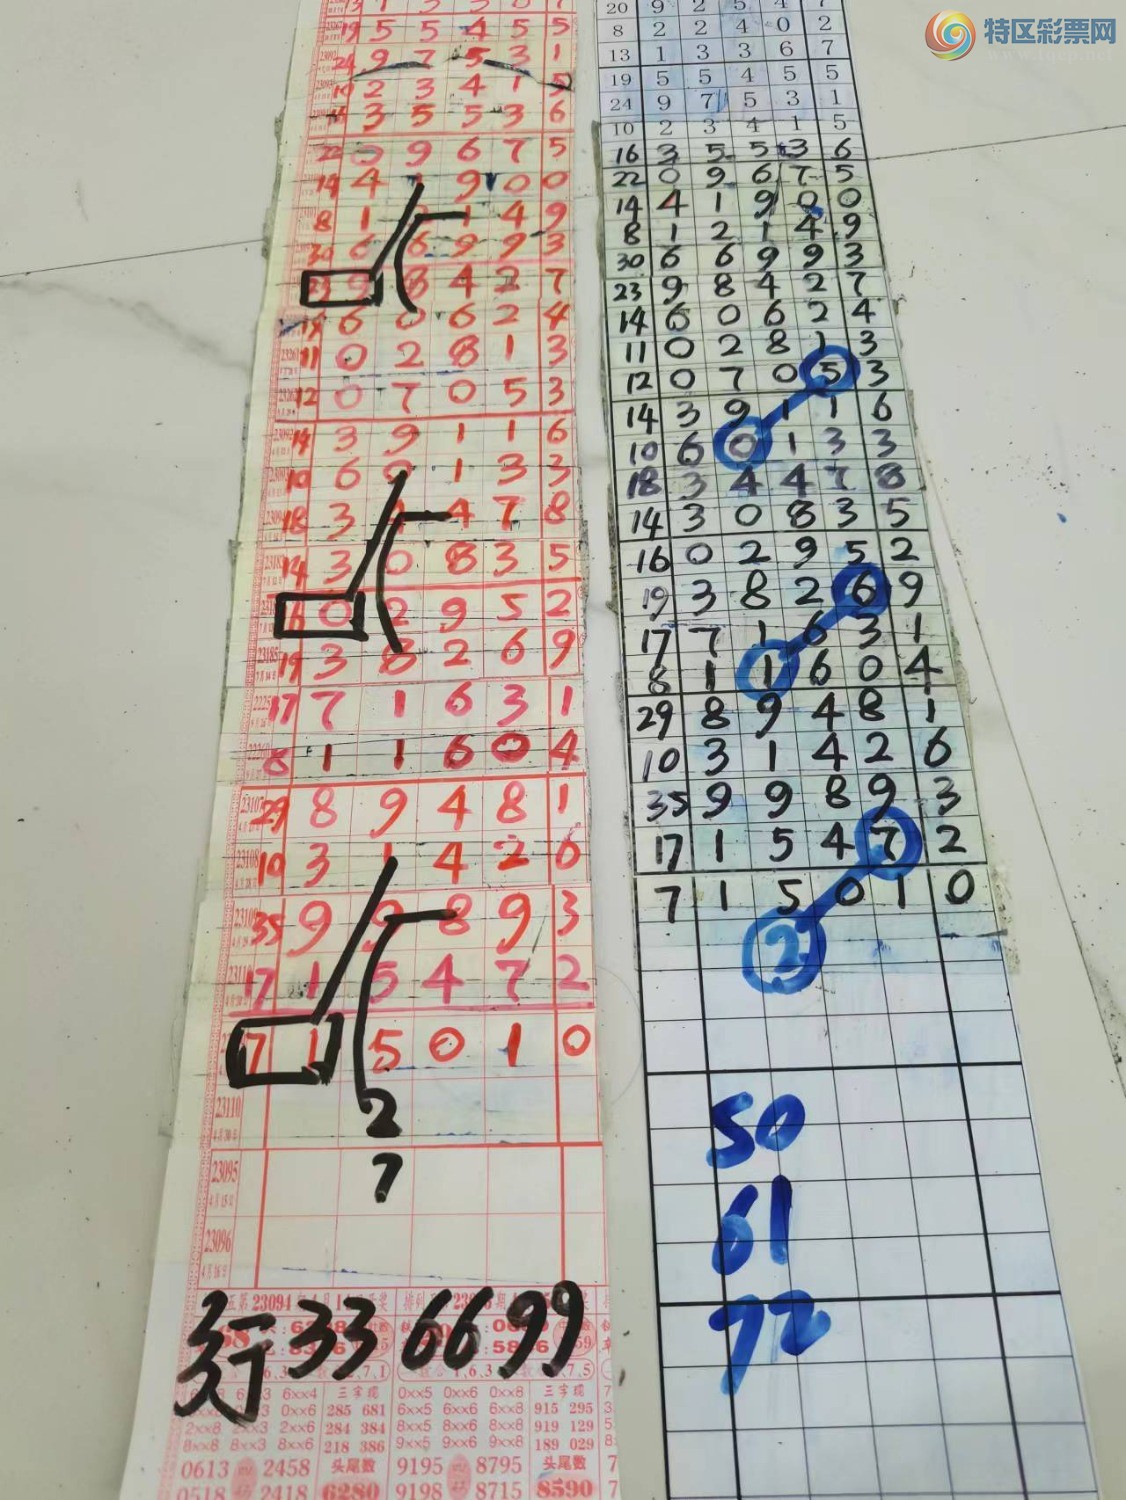 特区彩票网
19 5 5 4 5 5
24 9 7 5 3 1
10 2 3 4 1 5
3 5 5 3 6
22 0 9 6 7 5
14 4 9 0 0
8 1 1 4 9
30 6 6 9 9 3
23 9 8 4 2 7
14 6 0 6 2 4
11 0 2 8 1 3
12 0 7 0 5 3
14 3 9 1 1 6
10 6 0 1 3 3
18 3 4 4 7 8
14 3 0 8 3 5
16 0 2 9 5 2
19 3 8 2 6 9
17 7 1 6 3 1
8 1 1 6 0 4
23107 29 8 9 4 8 1
23108 10 3 1 4 2 6
35 9 9 8 9 3
17 1 5 4 7 2
7 1 5 0 1 0
23110
2
23095
7
23096
行 33 66 99
285 681 0xx5 0xx6 0xx8 915 295
2xx8 2xx3 2xx6 284 384 919 129
8xx8 8xx3 8xx6 218 386 9xx5 9xx6 9xx8 189 029
0613 2458 头尾数 9195 8795
0518 2418 6280 9198 8715 8590
20 9 2 5 4 7
8 2 2 4 0 2
13 1 3 3 6 7
19 5 5 4 5 5
24 9 7 5 3 1
10 2 3 4 1 5
16 3 5 5 3 6
22 0 9 6 7 5
14 4 1 9 0 0
8 1 2 1 4 9
30 6 6 9 9 3
23 9 8 4 2 7
14 6 0 6 2 4
11 0 2 8 1 3
12 0 7 0 5 3
14 3 9 1 1 6
10 6 0 1 3 3
18 3 4 4 7 8
14 3 0 8 3 5
16 0 2 9 5 2
19 3 8 2 6 9
17 7 1 6 3 1
8 1 1 6 0 4
29 8 9 4 8 1
10 3 1 4 2 6
35 9 9 8 9 3
17 1 5 4 7 2
7 1 5 0 1 0
2
50
61
72